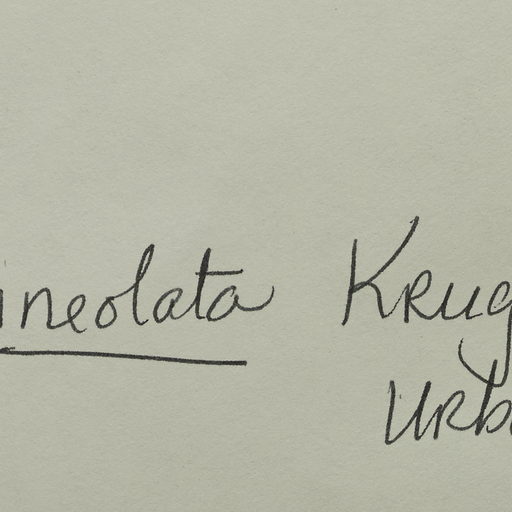 ineolata Krug
Urb